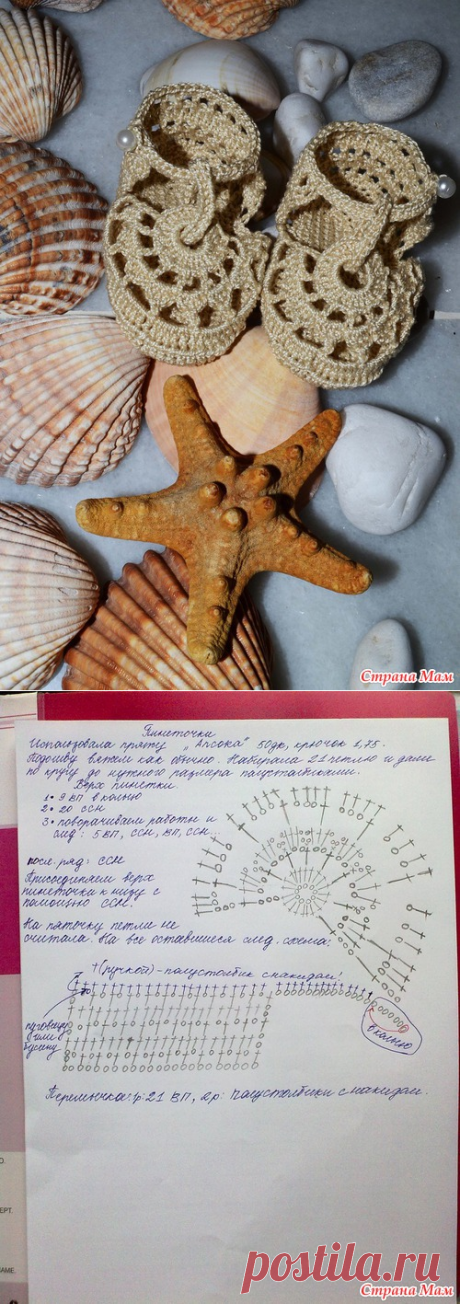 Страна Мам
Пинеточки
Использовала пряжу "Ализе" 50гр, крючок 1,75.
Подошву вяжем как обычно. Набирала 21 петлю и далее
по кругу до нужного размера полустолбиками.
Верх пинетки
1. 9 ВП в кольцо
2. 20 ССН
3. поворачиваем работу и
след: 5 ВП, ССН, ВП, ССН...
посл. ряд: ССН
Присоединяем верх
пинеточки к низу с
помощью ССН.
На пяточку петли не
считала. На все оставшиеся след. схема:
† (ручкой) - полустолбик с накидом!
пуговица
или
бусина
в кольцо
Перемычка: 1р: 21 ВП, 2р: полустолбики с накидом.
О.
ЕРТ.
ИАМЕ.
postila.ru
Страна Мам